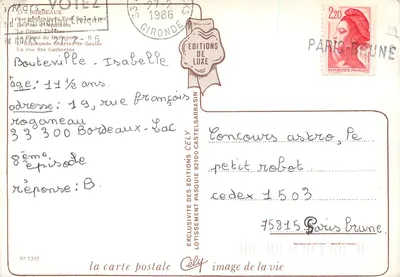 BORDEAUX
Le Grand Théâtre
La rue Ste Catherine
27-2
1986
GIRONDE
2,20
RÉPUBLIQUE FRANÇAISE
PARIS-BRUNE
EDITIONS
DE
LUXE
Bouteville - Isabelle
âge: 11 ½ ans.
adresse: 19, rue françois
roganeau
33 300 Bordeaux-Lac
8ème épisode
réponse: B.
EXCLUSIVITE DES EDITIONS CELY
LOTISSEMENT PASQUIE 82100 CASTELSARRASIN
Concours astro, le
petit robot.
cedex 1503
75815 Paris brune.
N° 5337
la carte postale Cely image de la vie